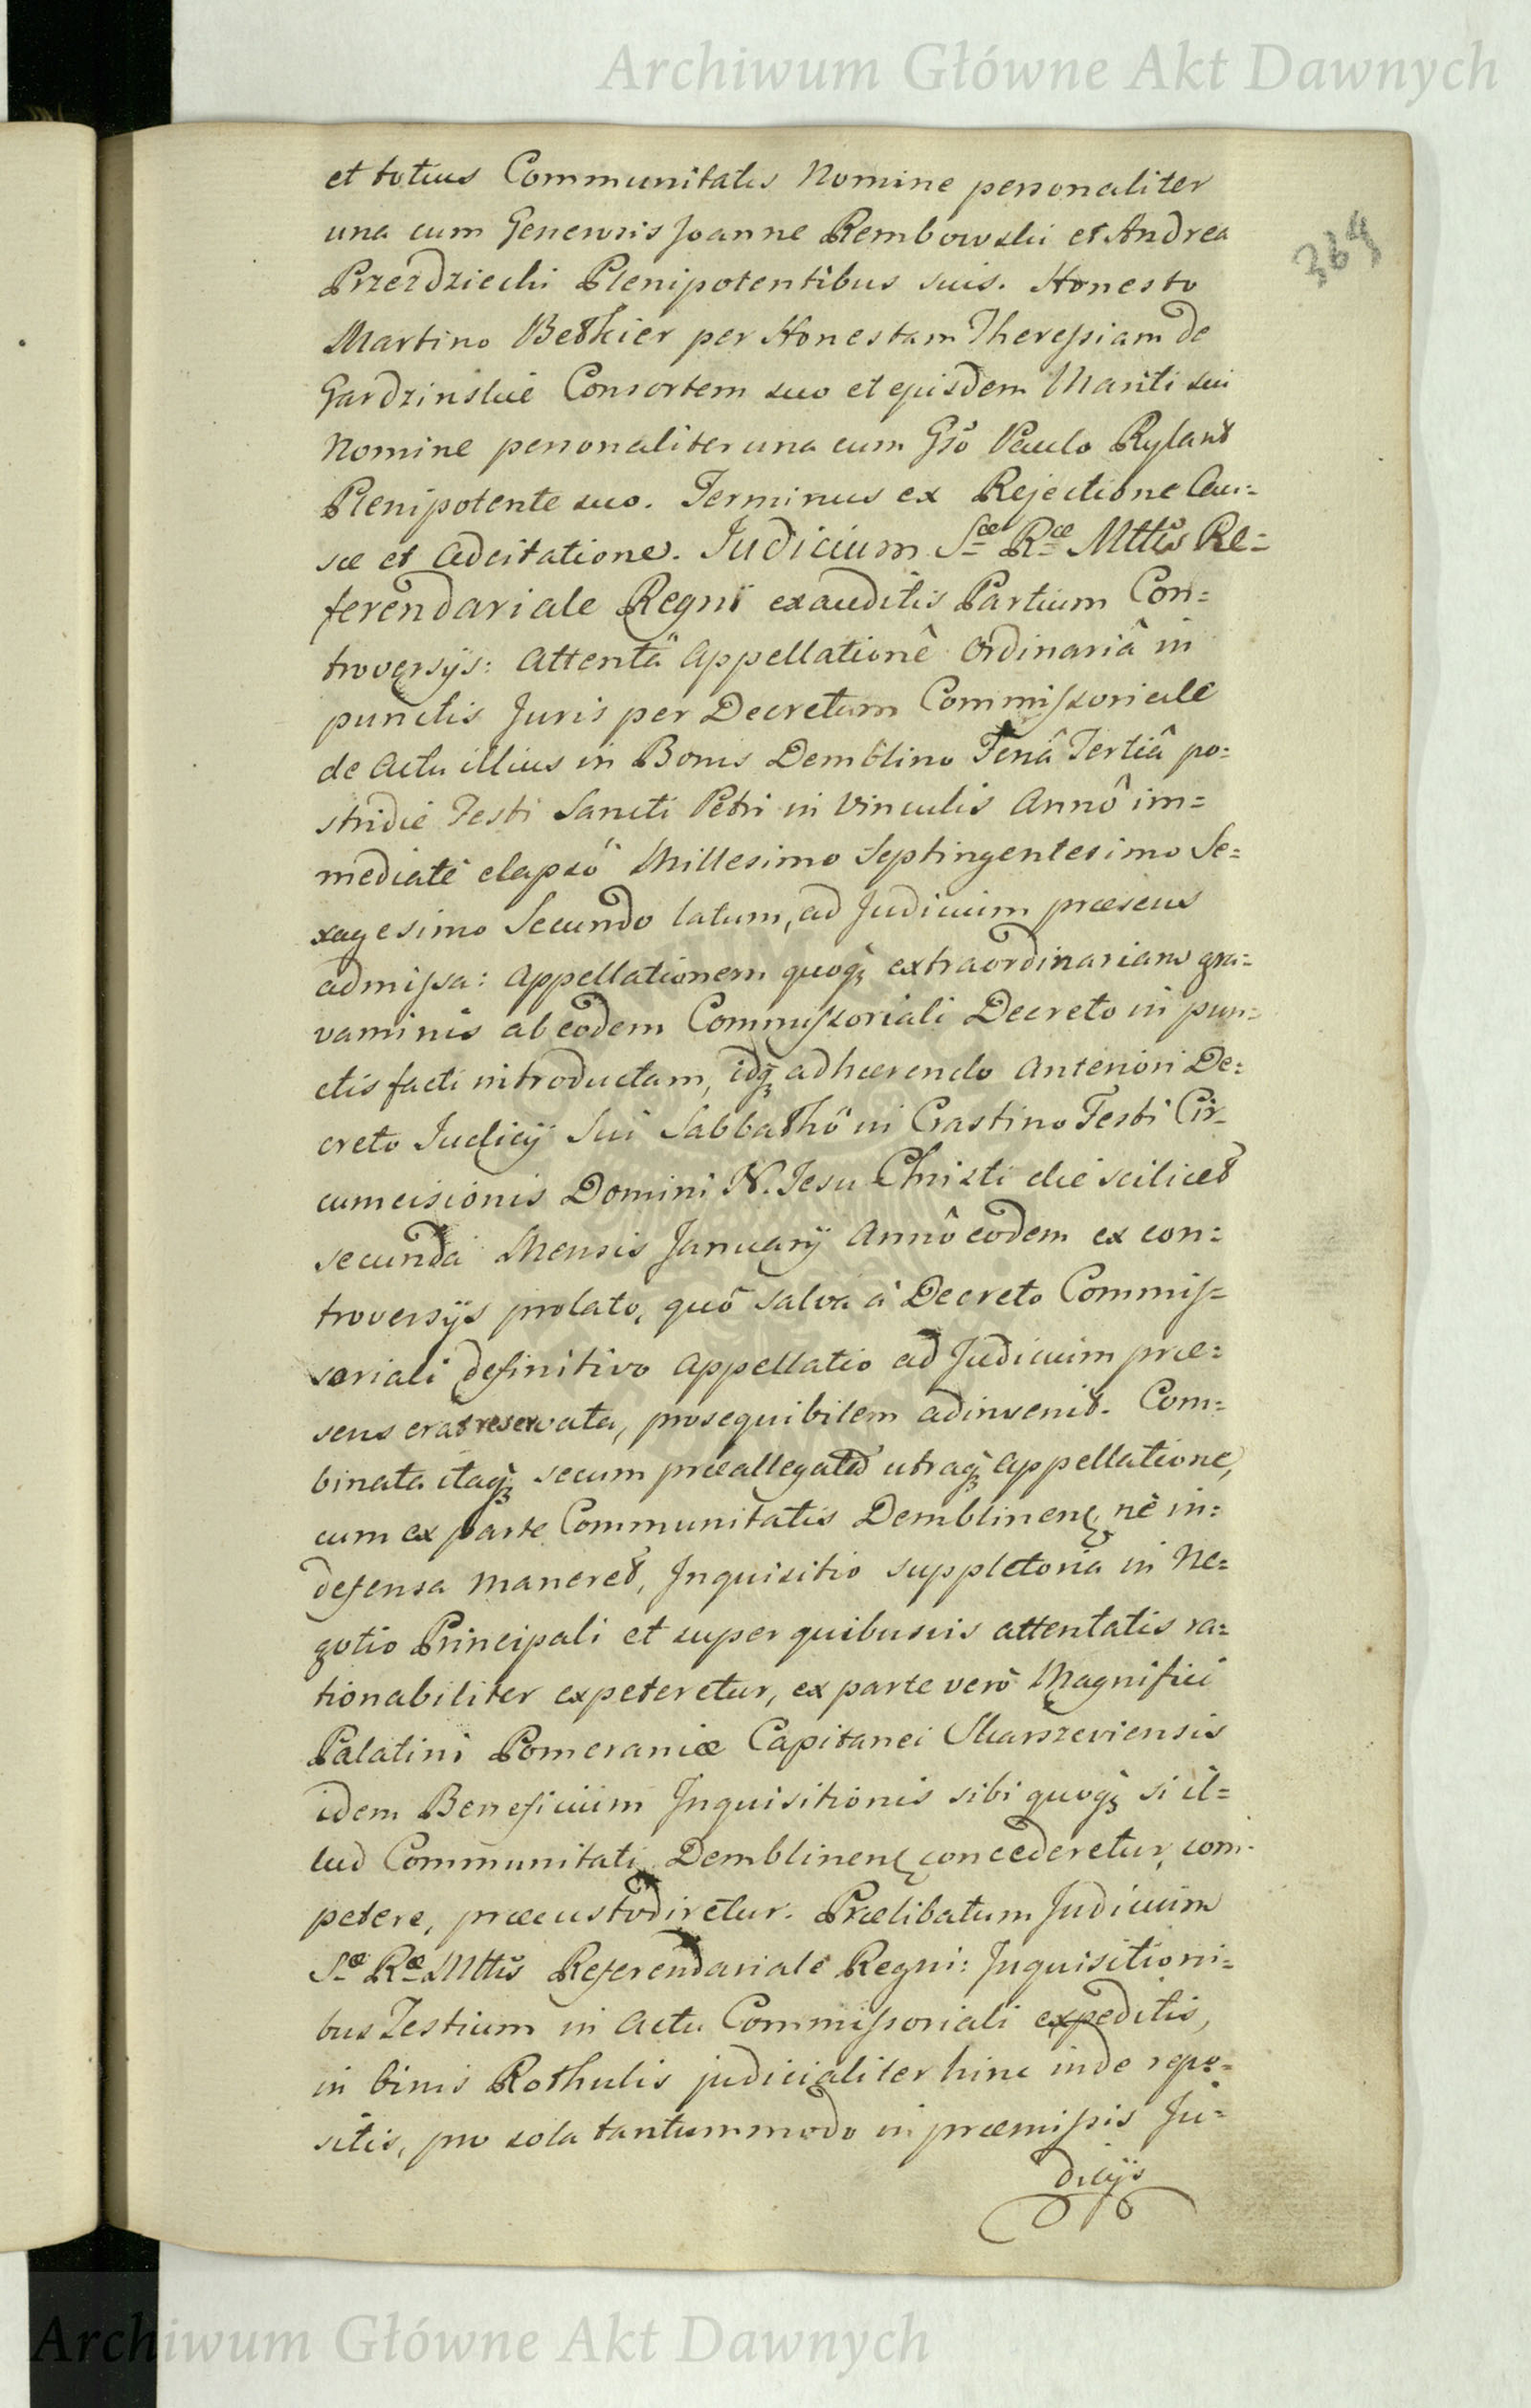 Archiwum Główne Akt Dawnych
364
et totius Communitatis Nomine personaliter
una cum Generosis Joanne Rembowski et Andrea
Przezdziecki Plenipotentibus suis. Honesto
Martino Bethier per Honestam Theressiam de
Gardzinskie Consortem suo et ejusdem Mariti sui
Nomine personaliter una cum Gso Paulo Rylant
Plenipotente suo. Terminus ex Rejectione Cau=
sæ et Adcitatione. Judicium Sæ Ræ Mttis Re=
ferendariale Regni exauditis Partium Con=
troversijs: Attentâ Appellationê Ordinariâ in
punctis Juris per Decretum Commissoriale
de Actu illius in Bonis Demblino Feriâ Tertiâ po=
stridie Festi Sancti Petri in Vinculis Annô im=
mediatè elapsô Millesimo Septingentesimo Se=
xagesimo Secundo latum, ad Judicium præsens
admissa: Appellationem quoq3 extraordinariam gra=
vaminis ab eodem Commissoriali Decreto in pun=
ctis facti introductam, idq3 adhærendo Anteriori De=
creto Judicij Sui Sabbathô in Crastino Festi Cir=
cumcisionis Domini N. Jesu Christi die scilicet
secunda Mensis Januarij Annô eodem ex con=
troversijs prolato, quô salva à Decreto Commis=
soriali definitivo Appellatio ad Judicium præ=
sens erat reservata, prosequibilem adinvenit. Com=
binata itaq3 secum præallegata utraq3 Appellatione,
cum ex parte Communitatis Demblinens nè in=
defensa maneret, Inquisitio suppletoria in Ne=
gotio Principali et super quibusvis attentatis ra=
tionabiliter expeteretur, ex parte verò Magnifici
Palatini Pomeraniæ Capitanei Skarszeviensis
idem Beneficium Inquisitionis sibi quoq3 si il=
lud Communitati Demblinens concederetur, com=
petere, præcustodiretur. Prælibatum Judicium
Sæ Ræ Mttis Referendariale Regni: Inquisitioni=
bus Testium in Actu Commissoriali expeditis,
in binis Rothulis judicialiter hinc inde repo=
sitis, pro sola tantummodo in præmissis Ju=
dicijs
Archiwum Główne Akt Dawnych